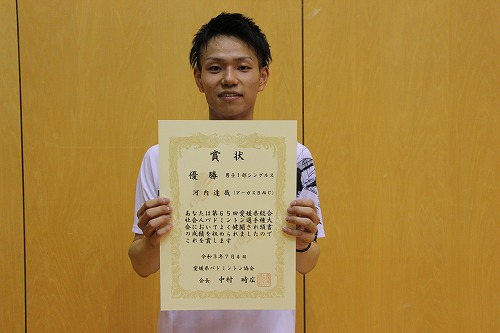 賞状
優勝 男子1部シングルス
河内達哉 (アーガスBMC)
あなたは第65回愛媛県総合
社会人バドミントン選手権大
会においてよく健闘され頭書
の成績を収められましたので
これを賞します
令和3年7月4日
愛媛県バドミントン協会
会長 中村時広